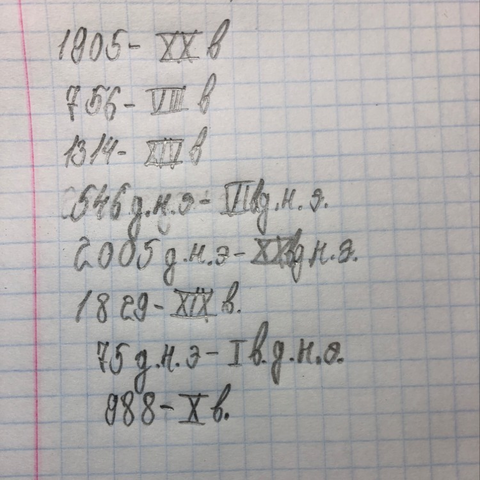 1905- XX в
756- VIII в
1314- XIV в
546 д.н.э- VI в д.н.э.
2005 д.н.э- XXI в д.н.э.
1829- XIX в.
75 д.н.э- I в.д.н.э.
988- X в.